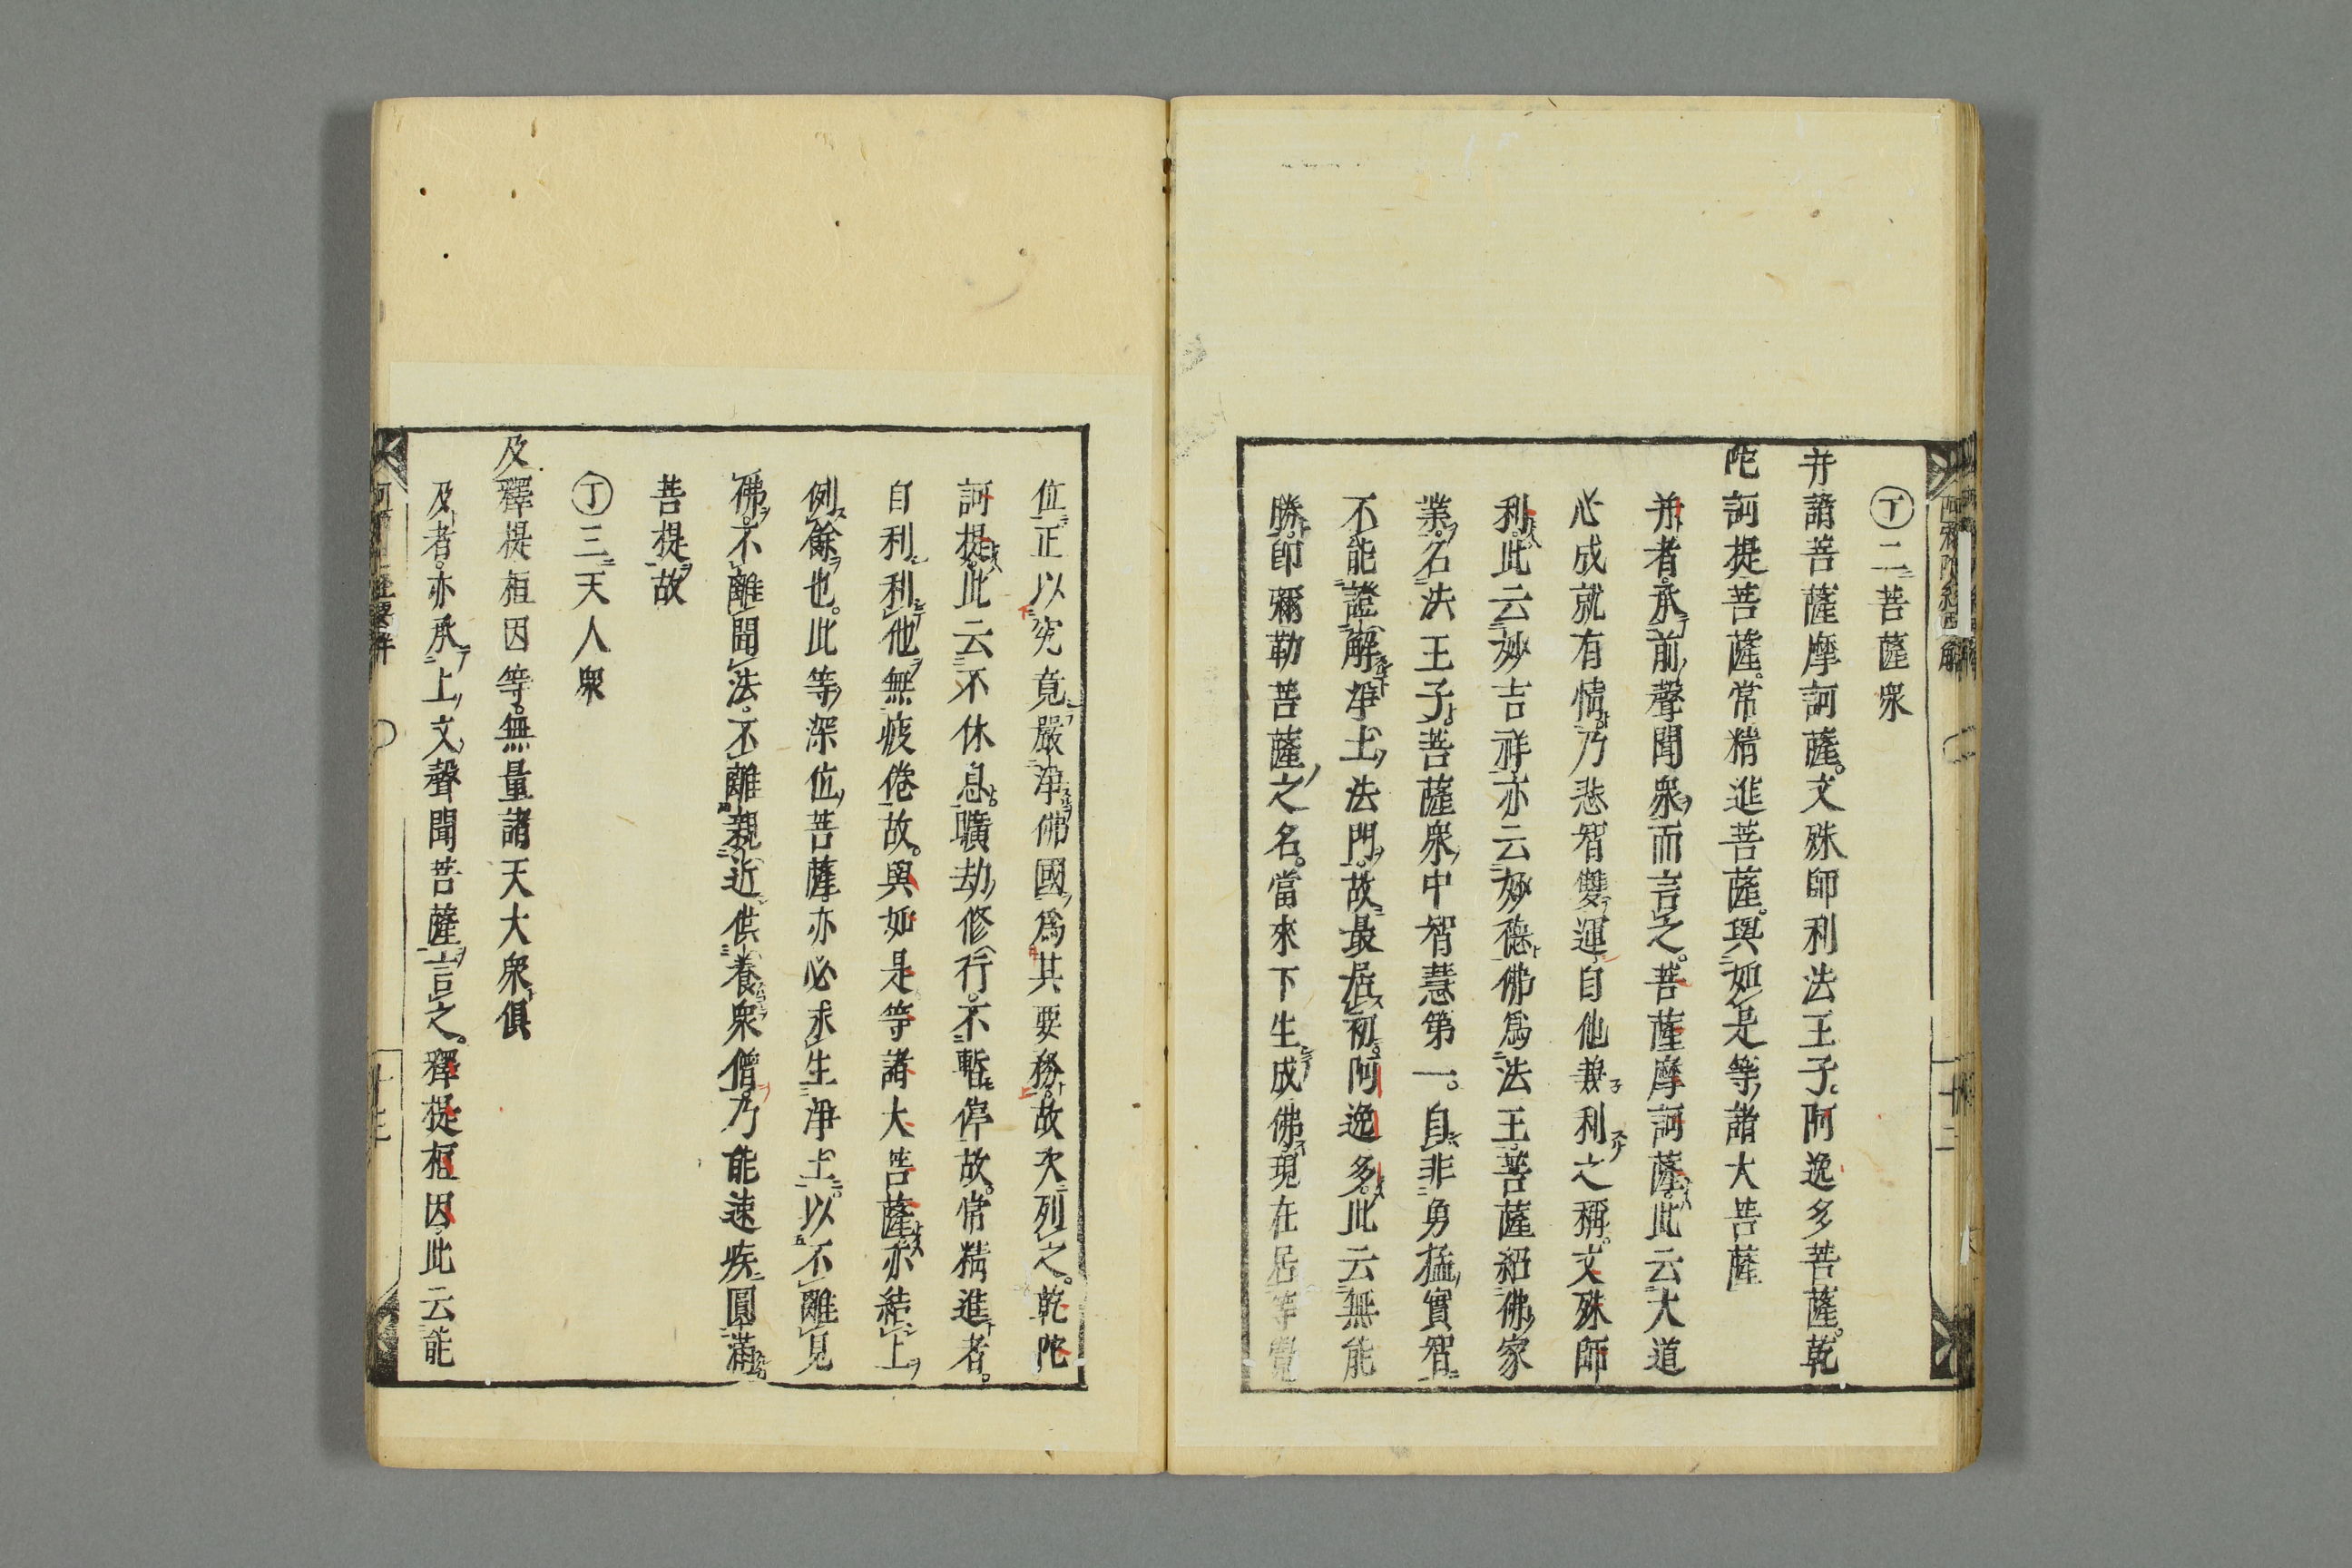 ㊀二菩薩衆
并諸菩薩摩訶薩。文殊師利法王子。阿逸多菩薩。乾
陀訶提菩薩。常精進菩薩。與如是等諸大菩薩
并者。承前聲聞衆而言之。菩薩摩訶薩。此云大道
心成就有情。乃悲智雙運。自他兼利之稱。文殊師
利。此云妙吉祥。亦云妙德。佛爲法王。菩薩紹佛家
業。名法王子。菩薩衆中智慧第一。自非勇猛實智。
不能證解淨土法門。故最居初。阿逸多。此云無能
勝。即彌勒菩薩之名。當來下生成佛。現在居等覺
位。正以究竟嚴淨佛國爲其要務。故次列之。乾陀
訶提。此云不休息。曠劫修行。不暫停故。常精進者。
自利利他無疲倦故。與如是等諸大菩薩。亦結上
例餘也。此等深位菩薩亦必求生淨土。以不離見
佛。不離聞法。不離親近供養衆僧。乃能速疾圓滿
菩提故
丁三天人衆
及釋提桓因等。無量諸天大衆俱
及者。亦承上文聲聞菩薩言之。釋提桓因。此云能